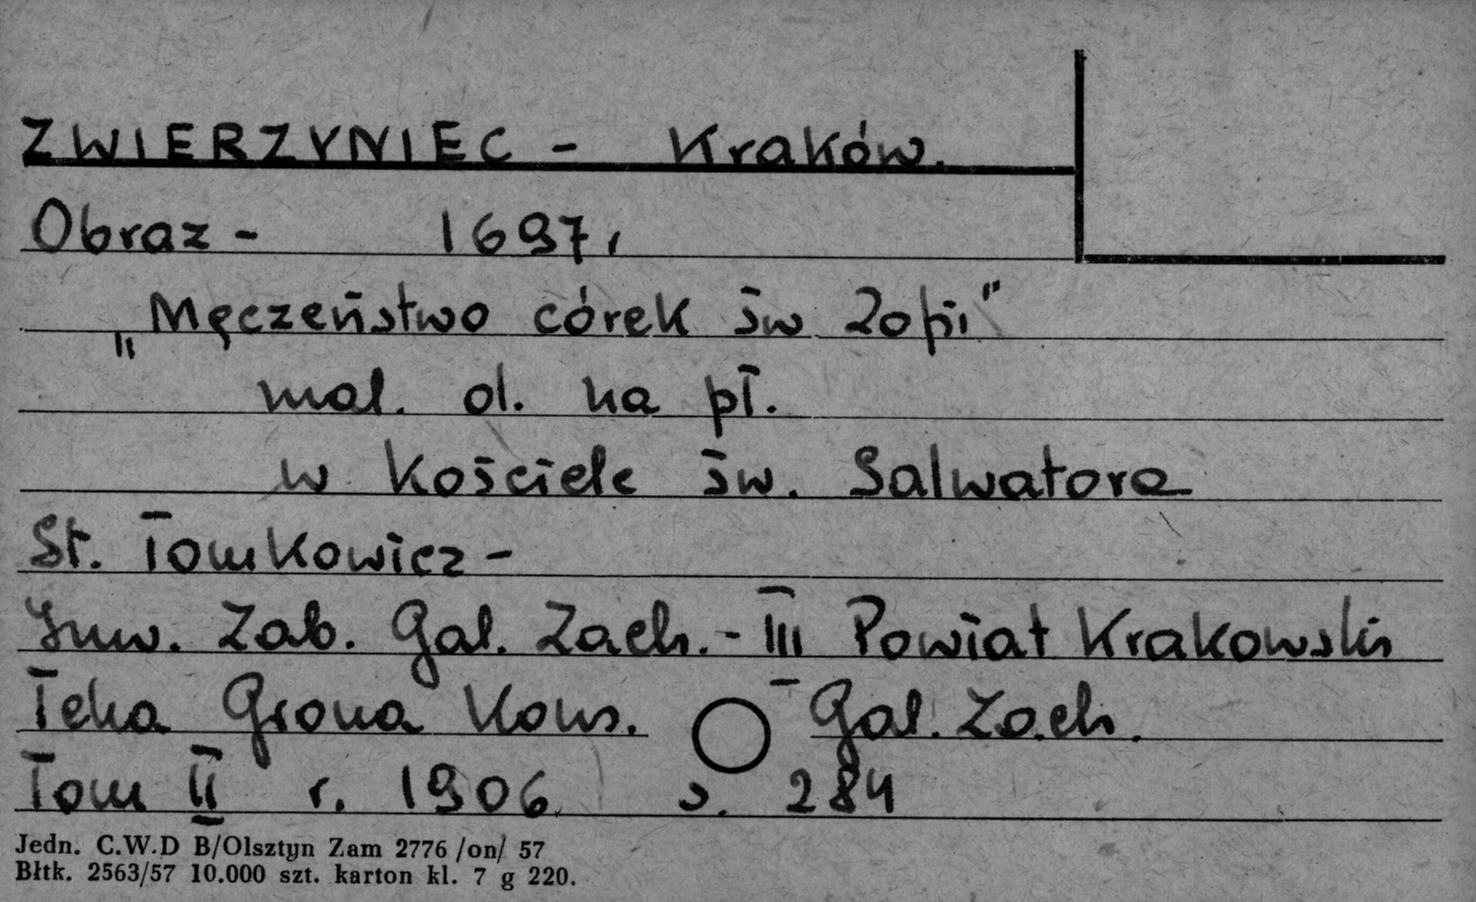 ZWIERZYNIEC - Kraków.
Obraz - 1697r
„Męczeństwo córek św Zofii"
mal. ol. na pł.
w Kościele św. Salwatora
St. Tomkowicz -
Inw. Zab. Gal. Zach. - III Powiat Krakowski
Teka Grona Kons. - Gal. Zach.
Tom II r. 1906 s. 284
Jedn. C.W.D B/Olsztyn Zam 2776 /on/ 57
Błtk. 2563/57 10.000 szt. karton kl. 7 g 220.